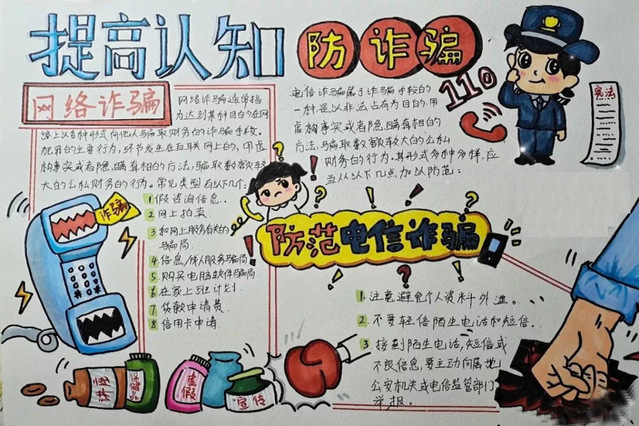 提高认知
防诈骗
110
宪法
网络诈骗
网络诈骗通常指
为达到某种目的在网
络上以各种形式向他人骗取财务的诈骗手段。
犯罪的主要行为,环节发生在互联网上的,用虚
构事实或者隐瞒真相的方法,骗取数额较
大的公私财务的行为。常见类型有以下几个:
1 假咨询信息.
2 网上拍卖
3 和网上服务有关的
骗局
4 信息/成人服务骗局
5 购买电脑软件骗局
6 在家上班计划
7 贷款申请费.
8 信用卡申请
电信诈骗属于诈骗手段的
一种,是以非法占有为目的,用
虚构事实或者隐瞒真相的
方法,骗取数额较大的公私
财务的行为,其形式多种多样,应
当从以下几点加以防范:
诈骗
防范电信诈骗
1. 注意避免个人资料外泄。
2. 不要轻信陌生电话和短信.
3 接到陌生电话,短信或
不良信息,要主动向属地
公安机关或电信监管部门
举报.
虚假
宣传